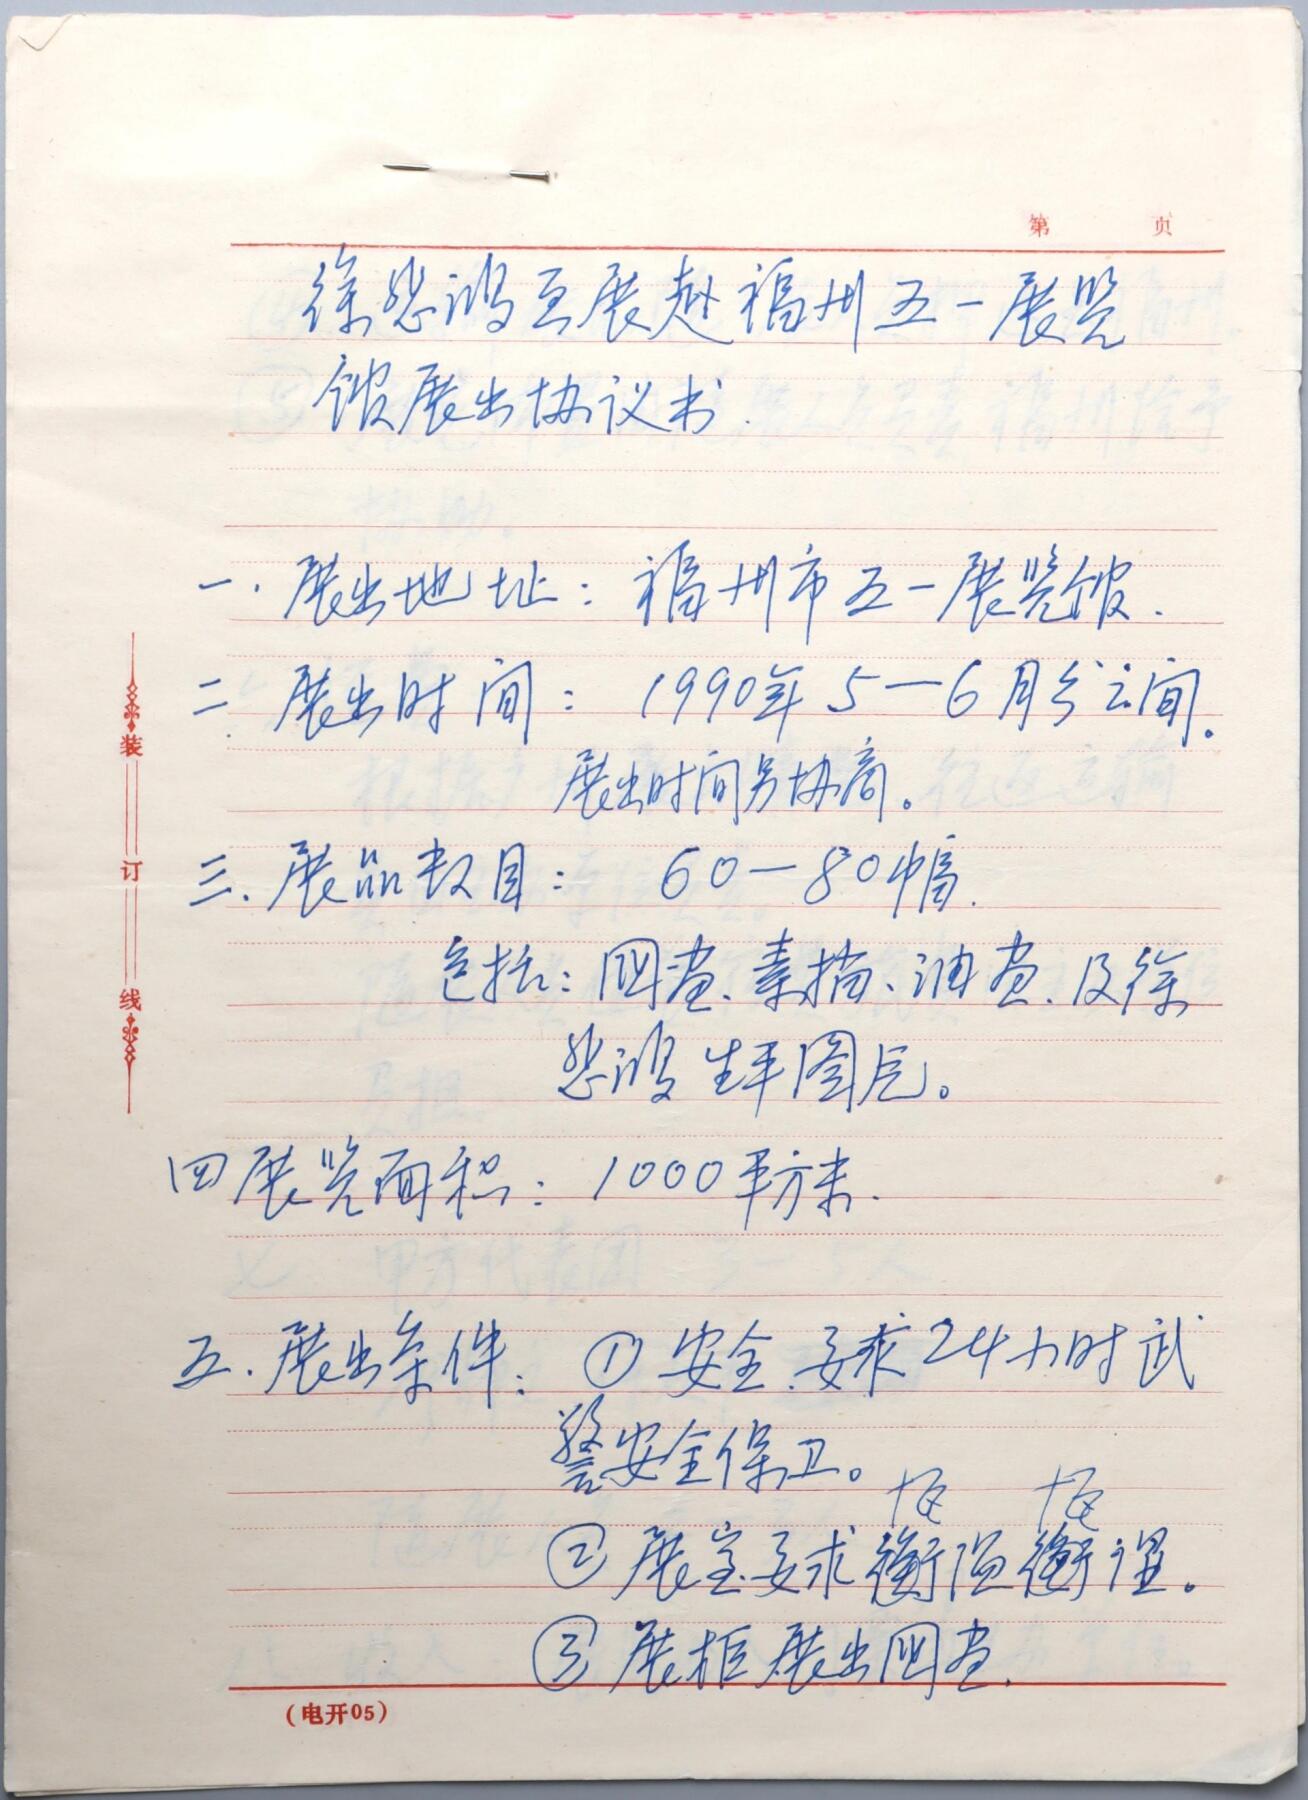 第 页
徐悲鸿画展赴福州五一展览
馆展出协议书.
一.展出地址：福州市五一展览馆.
二.展出时间：1990年5—6月份之间。
展出时间另协商。
三.展品数目：60—80幅.
包括：国画、素描、油画、及徐
悲鸿生平图片。
四展览面积：1000平方米.
五.展出条件：①安全.要求24小时武
警安全保卫。
恒 恒
②展室要求衡温衡湿。
③展柜展出国画.
装
订
线
(电开05)